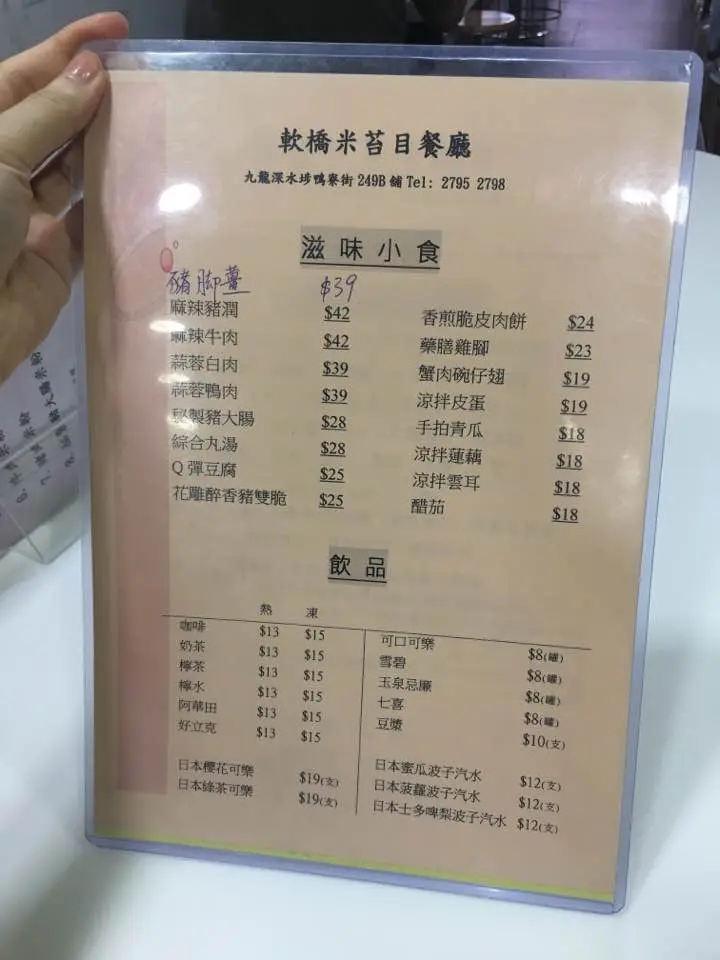 軟橋米苔目餐廳
九龍深水埗鴨寮街249B舖 Tel: 2795 2798
滋味小食
豬腳薑 $39
麻辣豬潤 $42
麻辣牛肉 $42
蒜蓉白肉 $39
蒜蓉鴨肉 $39
秘製豬大腸 $28
綜合丸湯 $28
Q彈豆腐 $25
花雕醉香豬雙脆 $25
香煎脆皮肉餅 $24
藥膳雞腳 $23
蟹肉碗仔翅 $19
涼拌皮蛋 $19
手拍青瓜 $18
涼拌蓮藕 $18
涼拌雲耳 $18
醋茄 $18
飲品
熱 凍
咖啡 $13 $15
奶茶 $13 $15
檸茶 $13 $15
檸水 $13 $15
阿華田 $13 $15
好立克 $13 $15
日本櫻花可樂 $19(支)
日本綠茶可樂 $19(支)
可口可樂 $8(罐)
雪碧 $8(罐)
玉泉忌廉 $8(罐)
七喜 $8(罐)
豆漿 $10(支)
日本蜜瓜波子汽水 $12(支)
日本菠蘿波子汽水 $12(支)
日本士多啤梨波子汽水 $12(支)